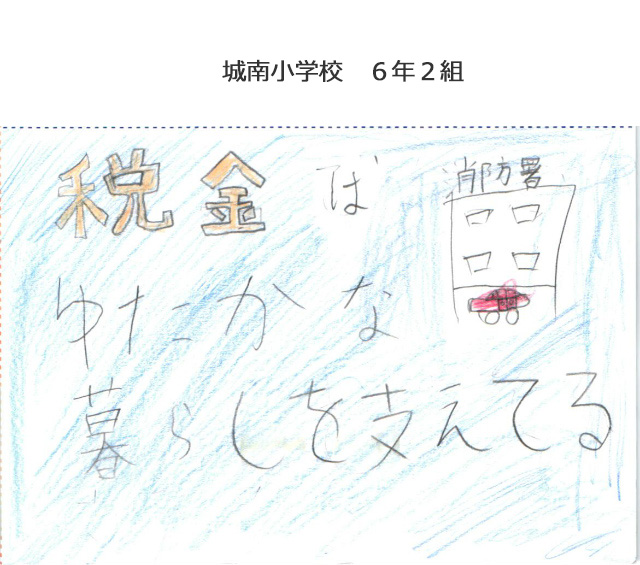 城南小学校　６年２組
税金は
消防署
ゆたかな
暮らしを支えてる